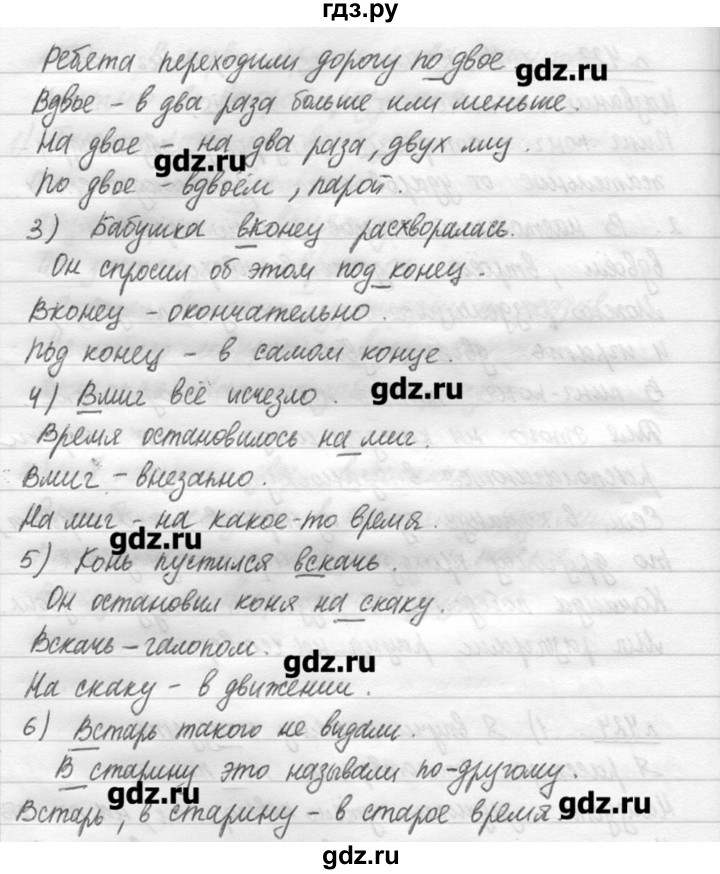 гдз.ру
Ребята переходили дорогу по двое
gdz.ru
Вдвое - в два раза больше или меньше.
На двое - на два раза, двух
gdz.ru
По двое - вдвоём, парой.
3) Бабушка вконец расхворалась.
Он спросил об этом под конец.
Вконец - окончательно.
Под конец - в самом конце.
gdz.ru
4) Вмиг всё исчезло.
Время остановилось на миг.
Вмиг - внезапно.
На миг - на какое-то время.
gdz.ru
5) Конь пустился вскачь.
Он остановил коня на скаку.
Вскачь - галопом.
gdz.ru
На скаку - в движении.
6) Встарь такого не видали.
В старину это называли по-другому.
gdz.ru
Встарь, в старину - в старое время
gdz.ru
gdz.ru